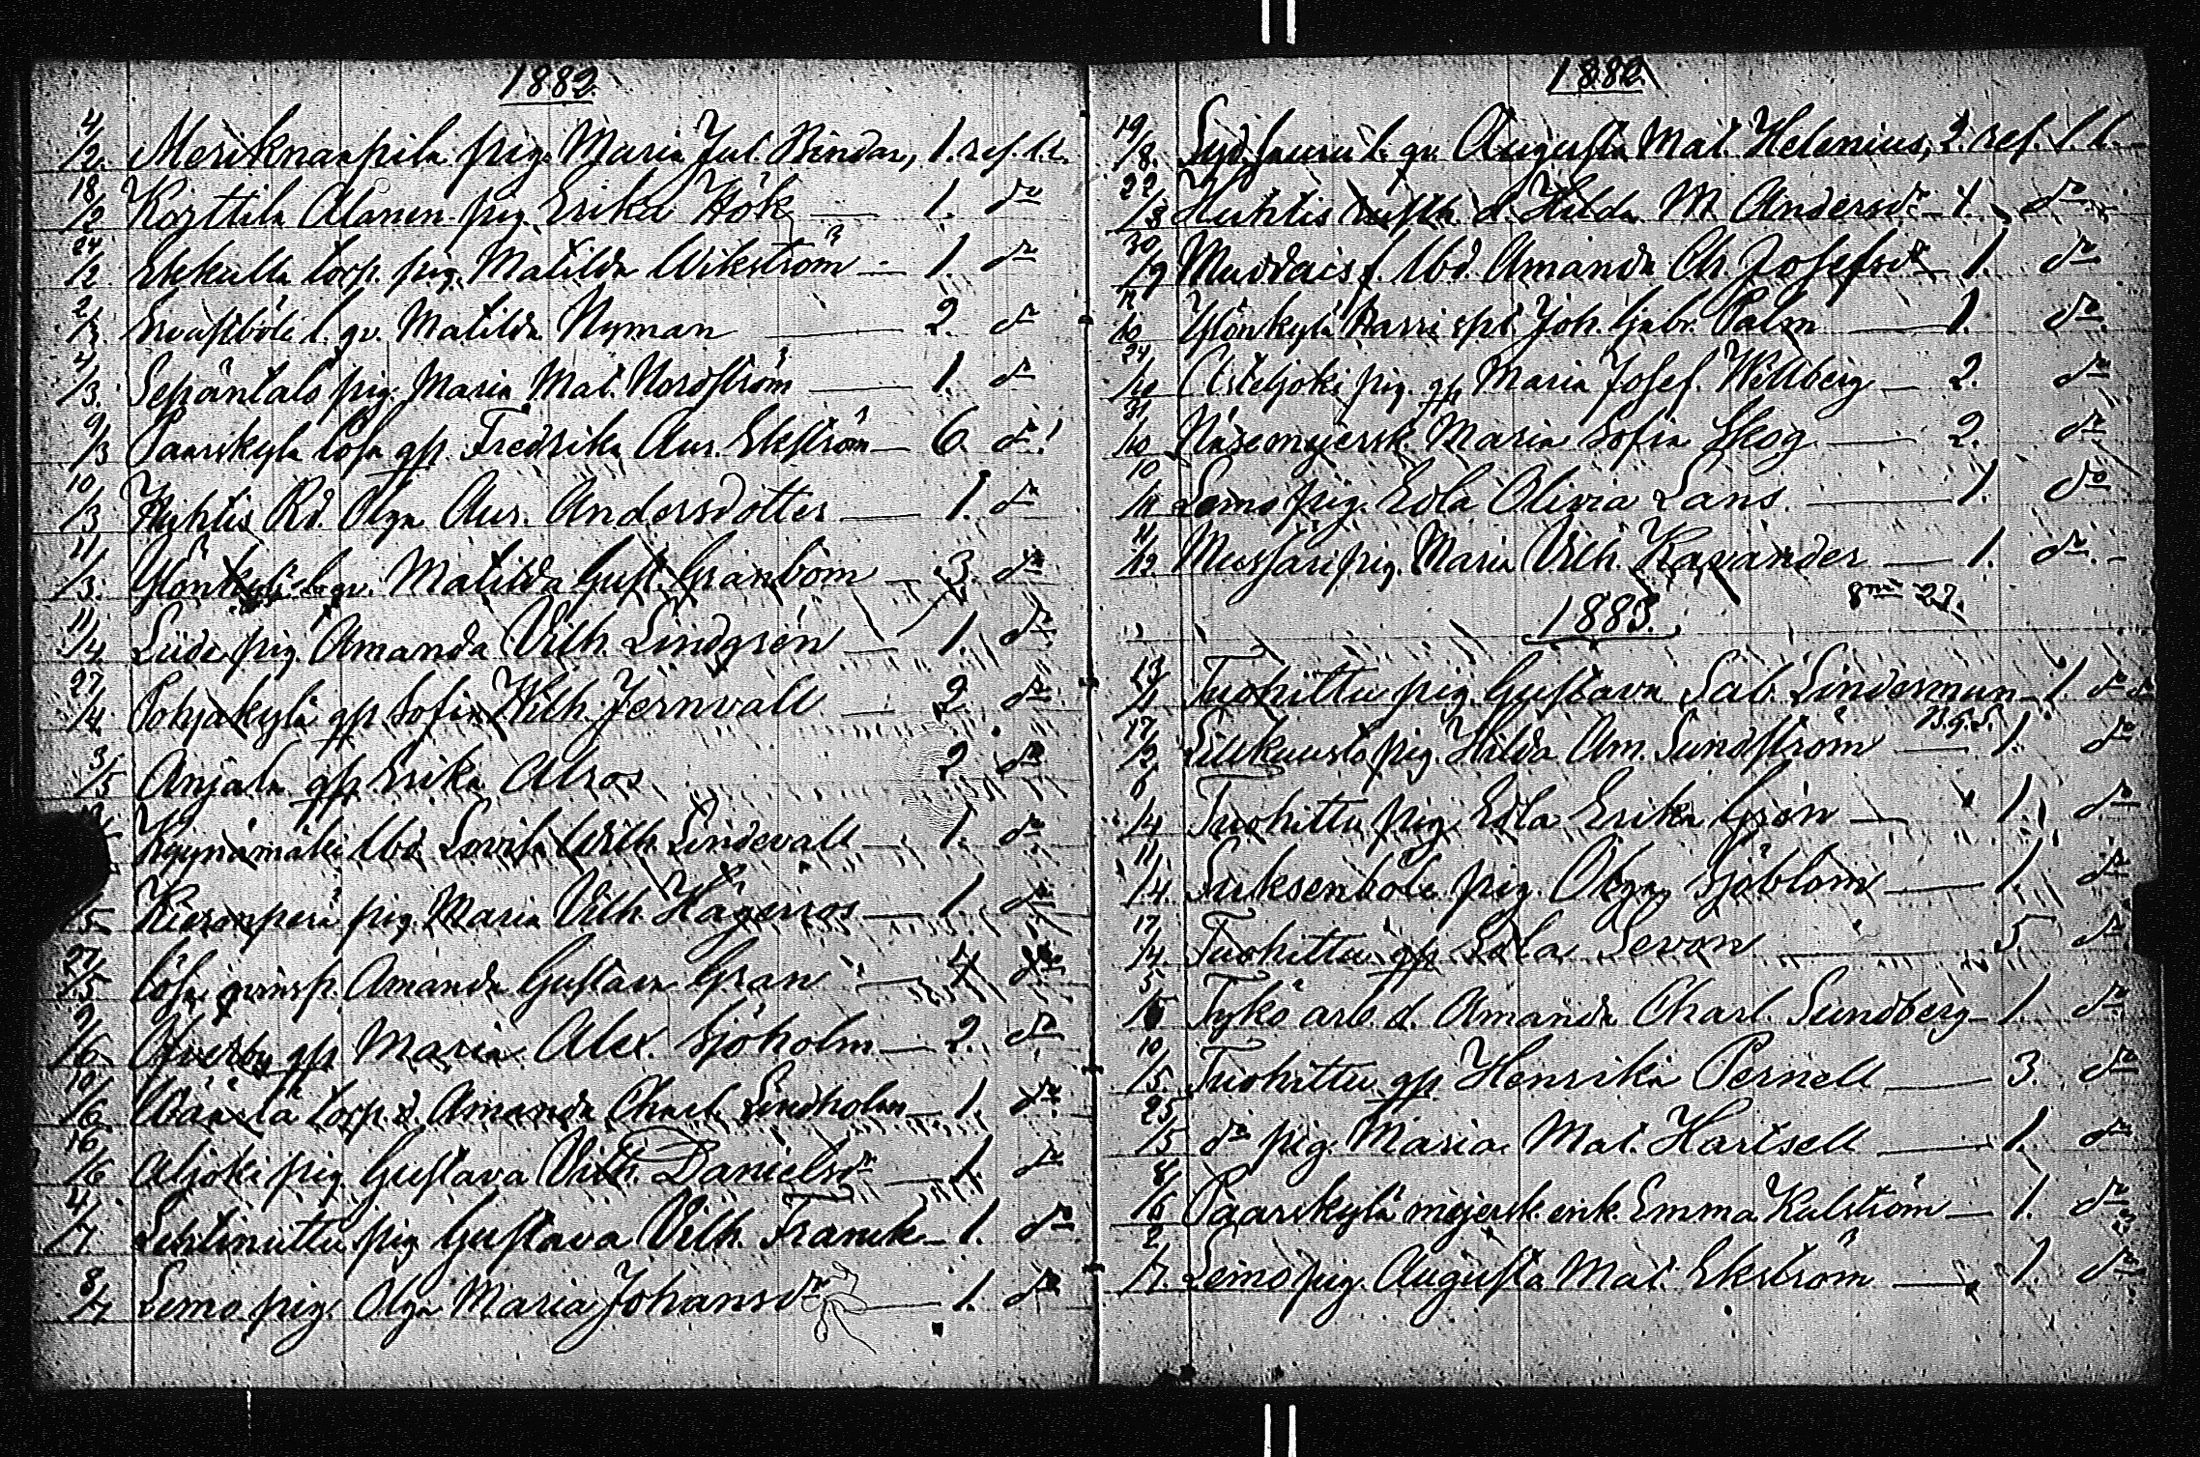 1882.
4/2. Meriknaapila pig. Maria Jul. Bindar, 1. ref. l.l.
18/2 Korttila Alanen pig. Erika Hök — 1. do
24/2 Ekkulla torp. pig. Matilda Wikström — 1. do
2/3. l. qv. Matilda Nyman — 2. do
4/3. Sepäntalo pig. Maria Mat. Nordström — 1. do
9/3 Paarskyla lösa gp. Fredrika Aur. Ekström — 6. do
10/3 Hyhtis Rd. Olga Aur. Andersdotter — 1. do
11/3. Ylönkylä l. qv. Matilda Gust. Granbom — 3. do
11/4. pig. Amanda Vilh. Lindgrén — 1. do
27/4. Pohjakylä gp Sofia Wilh. Jernvall — 2. do
3/5 Anjala gp. Erika Alros 2. do
lbd. Lovisa Wilh. Lindevall — 1. do
/5. Kieronperä pig. Maria Vilh. Hägerros — 1. do
27/5 lösa qvinsp. Amanda Gustava Gran — 4 do
9/6. Öfverby gp Maria Alex. Sjöholm — 2. do
10/6. torp. d. Amanda Charl. Lindholm — 1. do
16/6 Aljoki pig. Gustava Vilh. Danielsdr — 1. do
4/7. pig Gustava Vilh. Franck — 1. do
8/7 Lemo pig. Olga Maria Johansdr — 1. do
1882.
19/8. l. qv. Augusta Mat. Helenius, 2. ref. l.l.
22/8 Huhtis d. Hilda M. Andersdr — 1. do
30/9 lbd. Amanda Ch. Josefsdr — 1. do
11/10 Ylönkylä Harri Joh. Gabr. Palm — 1. do
24/10 Asteljoki pig. gp Maria Josef. Willberg — 2. do
31/10 Näse mejersk. Maria Sofia Skog — 2. do
10/11 Lemo pig. Edla Olivia Lans. — 1. do
11/12. Mussari pig. Maria Vilh. Kavander — 1. do
1883.
13/1 Tuohittu pig. Gustava Sab. Linderman — 1. do
17/2. pig. Hilda Am. Sundström — 1. do
6/4 Tuohittu pig Edla Erika Grén — 1. do
11/4. Suksenböle pig. Olga Sjöblom — 1. do
17/4. Tuohittu gp Edla Levon — 5 do
5/5 Tykö arb. d. Amanda Charl. Sundberg — 1. do
10/5. Tuohittu gp Henrika Pernell — 3. do
25/5 do pig. Maria Mat. Hartsell — 1. do
8/6 Paarskylä mejersk. enk. Emma Kulström — 1. do
2/7. Lemo pig. Augusta Mat. Ekström — 1. do